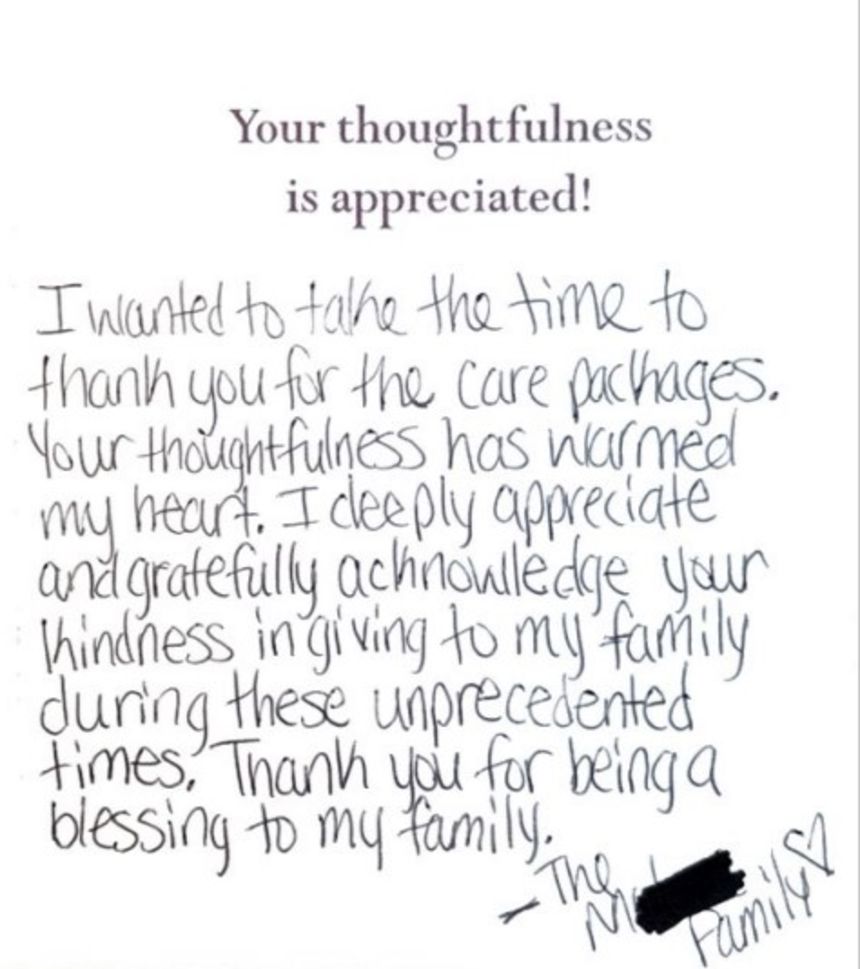 Your thoughtfulness
is appreciated!
I wanted to take the time to
thank you for the care packages.
Your thoughtfulness has warmed
my heart. I deeply appreciate
and gratefully acknowledge your
kindness in giving to my family
during these unprecedented
times. Thank you for being a
blessing to my family.
- The
Family ♡